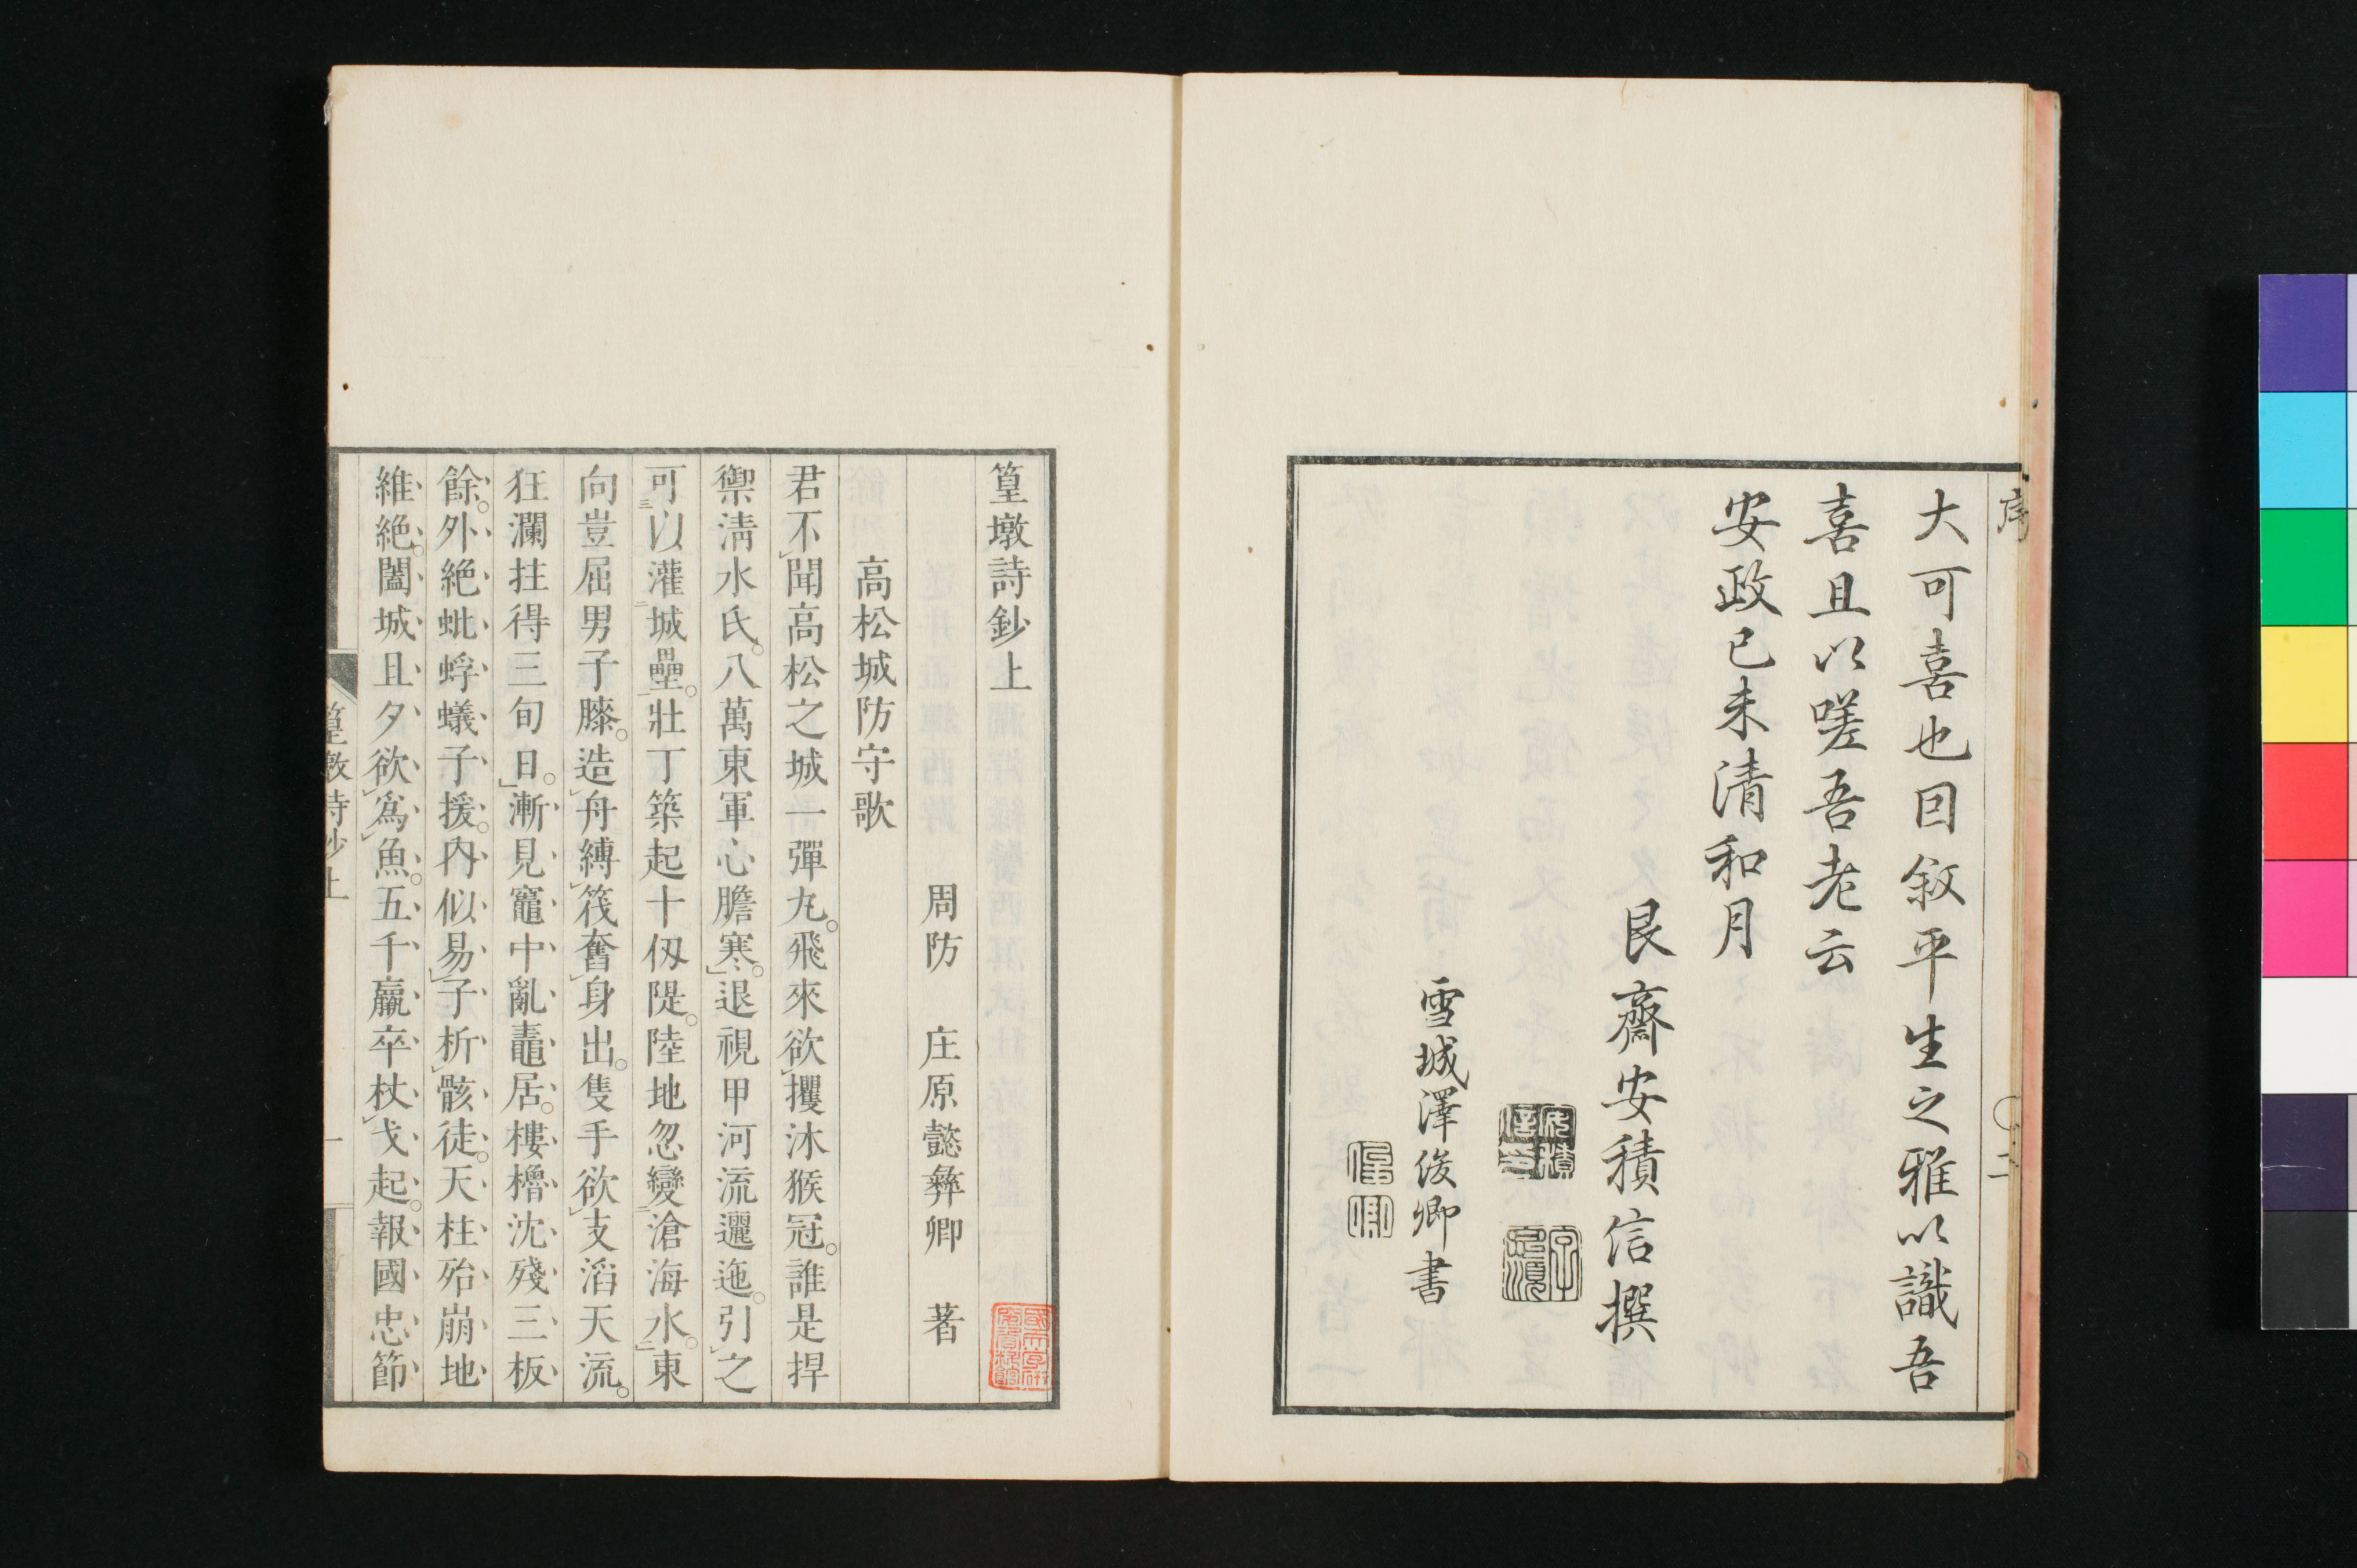 序
大可喜也因叙平生之雅以識吾
喜且以嗟吾老云
安政己未清和月
艮齋安積信撰
雪城澤俊卿書
二
篁墩詩鈔上
周防 庄原懿彜卿 著
高松城防守歌
君不聞高松之城一彈丸。飛來欲攫沐猴冠。誰是捍
禦淸水氏。八萬東軍心膽寒。退視甲河流邐迤。引之
可三以灌二城壘。一壯丁築起十仭隄。陸地忽變二滄海水。一東
向豈屈男子膝。造舟縛筏奮身出。隻手欲支滔天流。
狂瀾拄得三旬日。漸見竈中亂鼃居。樓櫓沈殘三板
餘。外絶蚍蜉蟻子援。內似易子析骸徒。天柱殆崩地
維絶。闔城且夕欲爲魚。五千羸卒杖戈起。報國忠節
篁墩詩鈔上
一